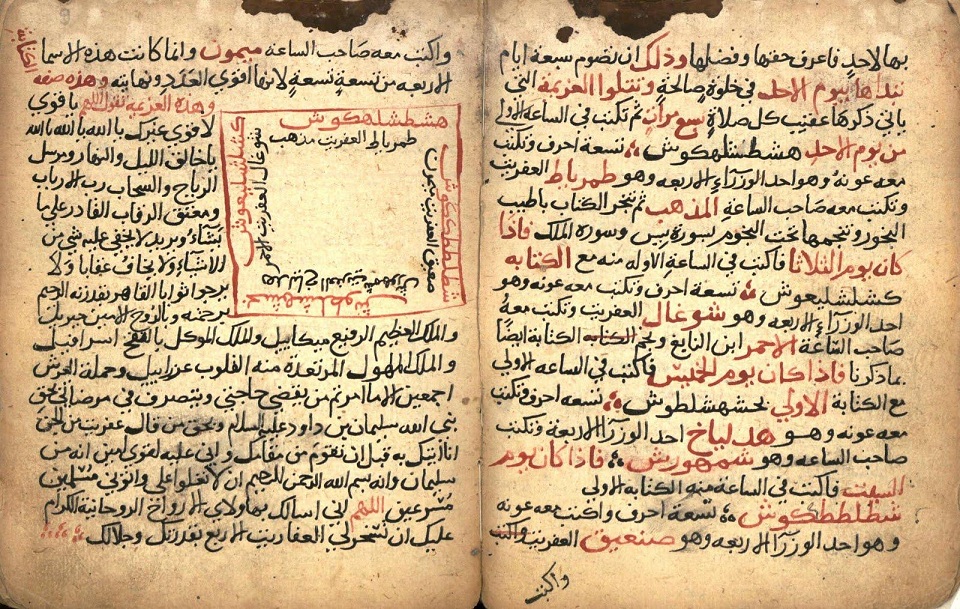 بها لاحد فاعرف حقها وفضلها وذلك ان تصوم سبعة ايام
تبداها بيوم الاحد في خلوة صالحة وتتلوا العزيمة التي
ياتي ذكرها عقيب كل صلاة سبع مرات ثم تكتب في الساعة الاولي
من يوم الاحد هشطشلهكوش تسعة احرف وتكتب
معه عونه وهو احد الوزراء الاربعه وهو طمرياط العفريت
وتكتب معه صاحب الساعة المذهب ثم تبخر الكتاب باطيب
البخور وتنجمها تحت النجوم بسورة يس وسورة الملك فاذا
كان يوم الثلاثا فاكتب في الساعة الاوله منه مع الكتابه
كشلشليعوش تسعة احرف وتكتب معه عونه وهو
احد الوزراء الاربعه وهو شوغال العفريت وتكتب معه
صاحب الساعة الاحمر ابن التابع ونجم الكتابه الكتابة ايضا
ما ذكرنا فاذا كان يوم الخميس فاكتب في الساعه الاولي
مع الكتابة الاولي بخشهشلطوش تسعه احرف وتكتب
معه عونه وهو هدلياخ احد الوزراء الاربعة وتكتب
صاحب الساعه وهو شمهورش فاذا كان يوم
السبت فاكتب في الساعة منه الكتابه الاولي
شطلططكوش تسعة احرف واكتب معه عونه
وهو احد الوزراء الاربعه وهو صنعيق العفريت واكتب
واكتب
واكتب معه صاحب الساعة ميمون وانما كانت هذه الاسما
الاربعه من تسعة تسعة لانها اقوي العدد ونهايته وهذه صفه
وهذه العزيمة تقول اللهم يا قوي
لا قوي غيرك يا الله يا الله يا الله
يا خالق الليل والنهار ومرسل
الرياح والسحاب رب الارباب
ومعتق الرقاب القادر علي ما
يشاء ويريد لا يخفي عليه شي من
الاشياء ولا يخاف عقابا ولا
يرجوا ثوابا القاهر بقدرته الرحيم
برحمته وبالروح الامين جبريل
والملك العظيم الرفيع ميكاييل والملك الموكل بالنفخ اسرافيل
والملك المهول المرتعدة منه القلوب عزراييل وحملة العرش
اجمعين الا ما امرتم من يقضي حاجتي ويتصرف في مرضاتي بحق
نبي الله سليمان بن داود عليه السلام وبحق من قال عفريت من الجن
انا اتيك به قبل ان تقوم من مقامك واني عليه لقوي امين انه من
سليمان وانه بسم الله الرحمن الرحيم ان لا تعلوا علي واتوني مسلمين
مسرعين اللهم اني اسالك بهاولاي الارواح الروحانية الكرام
عليك ان تسخر لي العفاريت الاربع بقدرتك وجلالك
هشطشلهكوش
طمرياط العفريت مذهب
شطلططكوش
صعيق العفريت ميمون
بخشهشلطوش
هدلياخ العفريت شمهورش
كشلشليعوش
شوغال العفريت الاحمر